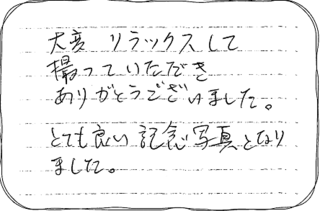 大変 リラックスして
撮っていただき
ありがとうございました。
とても良い記念写真となり
ました。